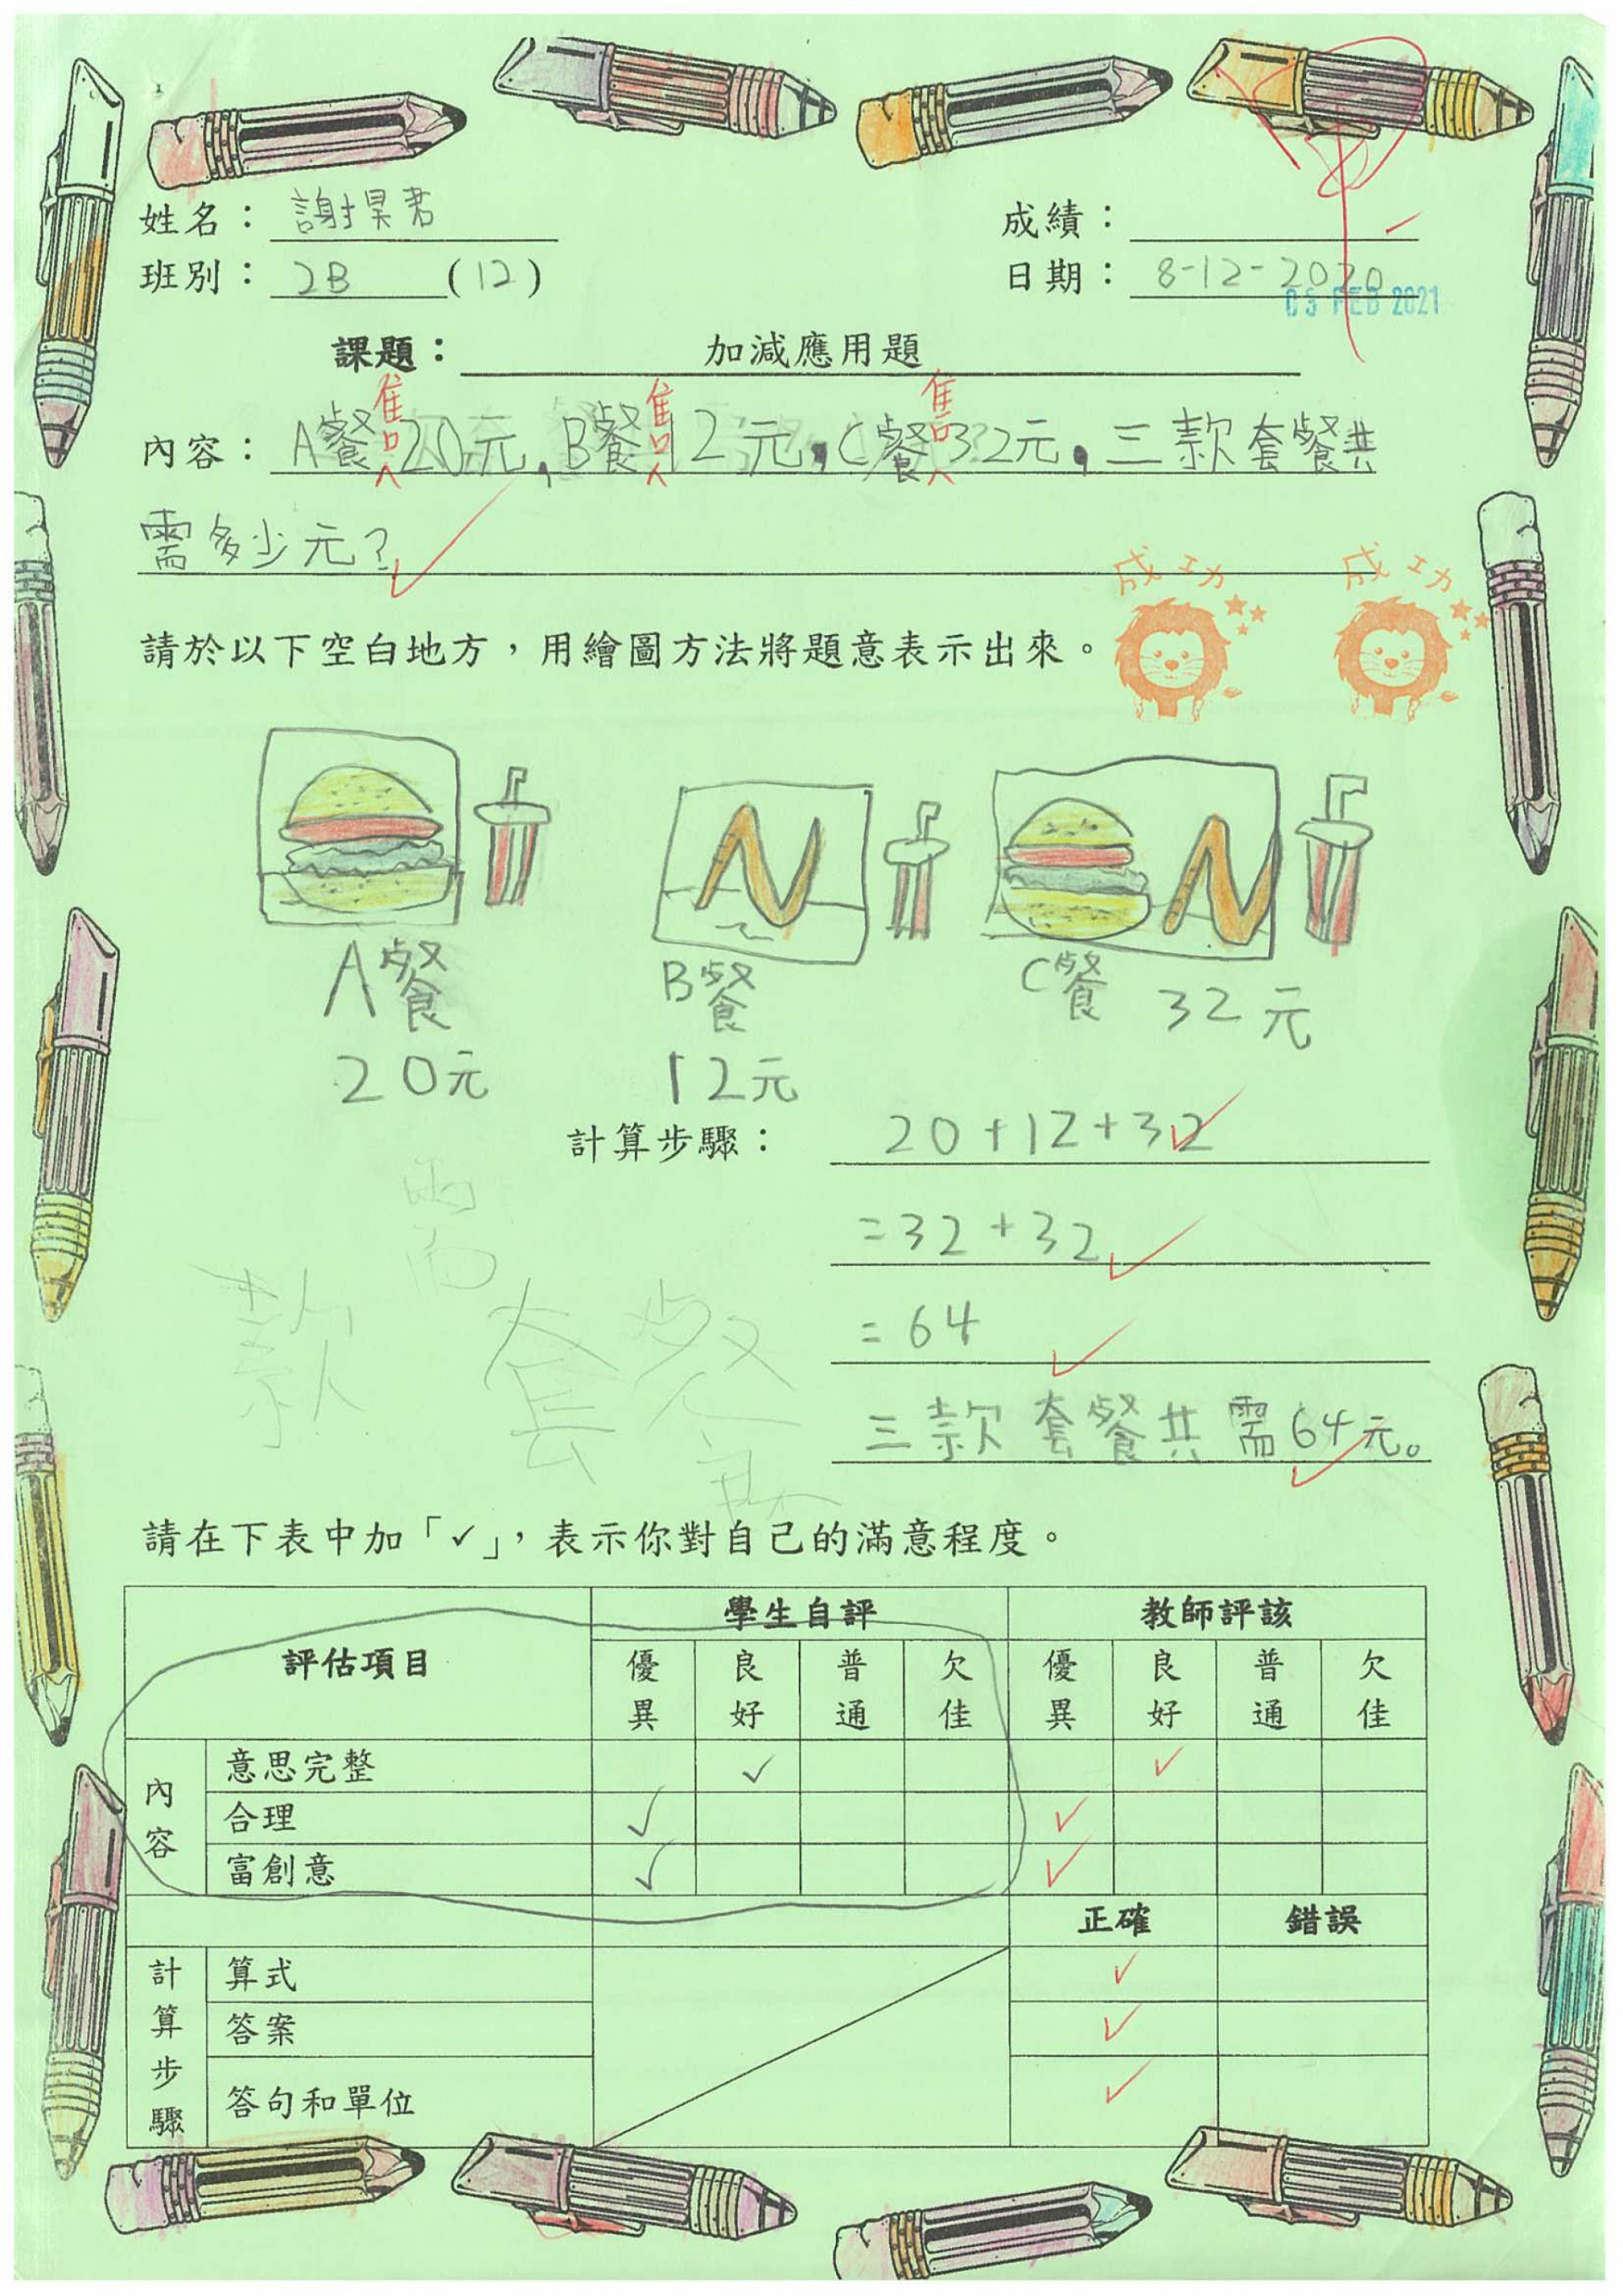 姓名： 謝昊君
成績：
班別： 2B (12)
日期： 8-12-2020
05 FEB 2021
課題： 加減應用題
內容： A餐售20元，B餐售12元，C餐售32元。三款套餐共
需多少元？
成功 成功
請於以下空白地方，用繪圖方法將題意表示出來。
A餐 B餐 C餐 32元
20元 12元
計算步驟： 20+12+32
=32+32
=64
需
款 套餐
三款套餐共需64元。
請在下表中加「✓」，表示你對自己的滿意程度。
評估項目 學生自評 教師評該
優異 良好 普通 欠佳 優異 良好 普通 欠佳
內容 意思完整 ✓ ✓
合理 ✓ ✓
富創意 ✓ ✓
正確 錯誤
計算步驟 算式 ✓
答案 ✓
答句和單位 ✓